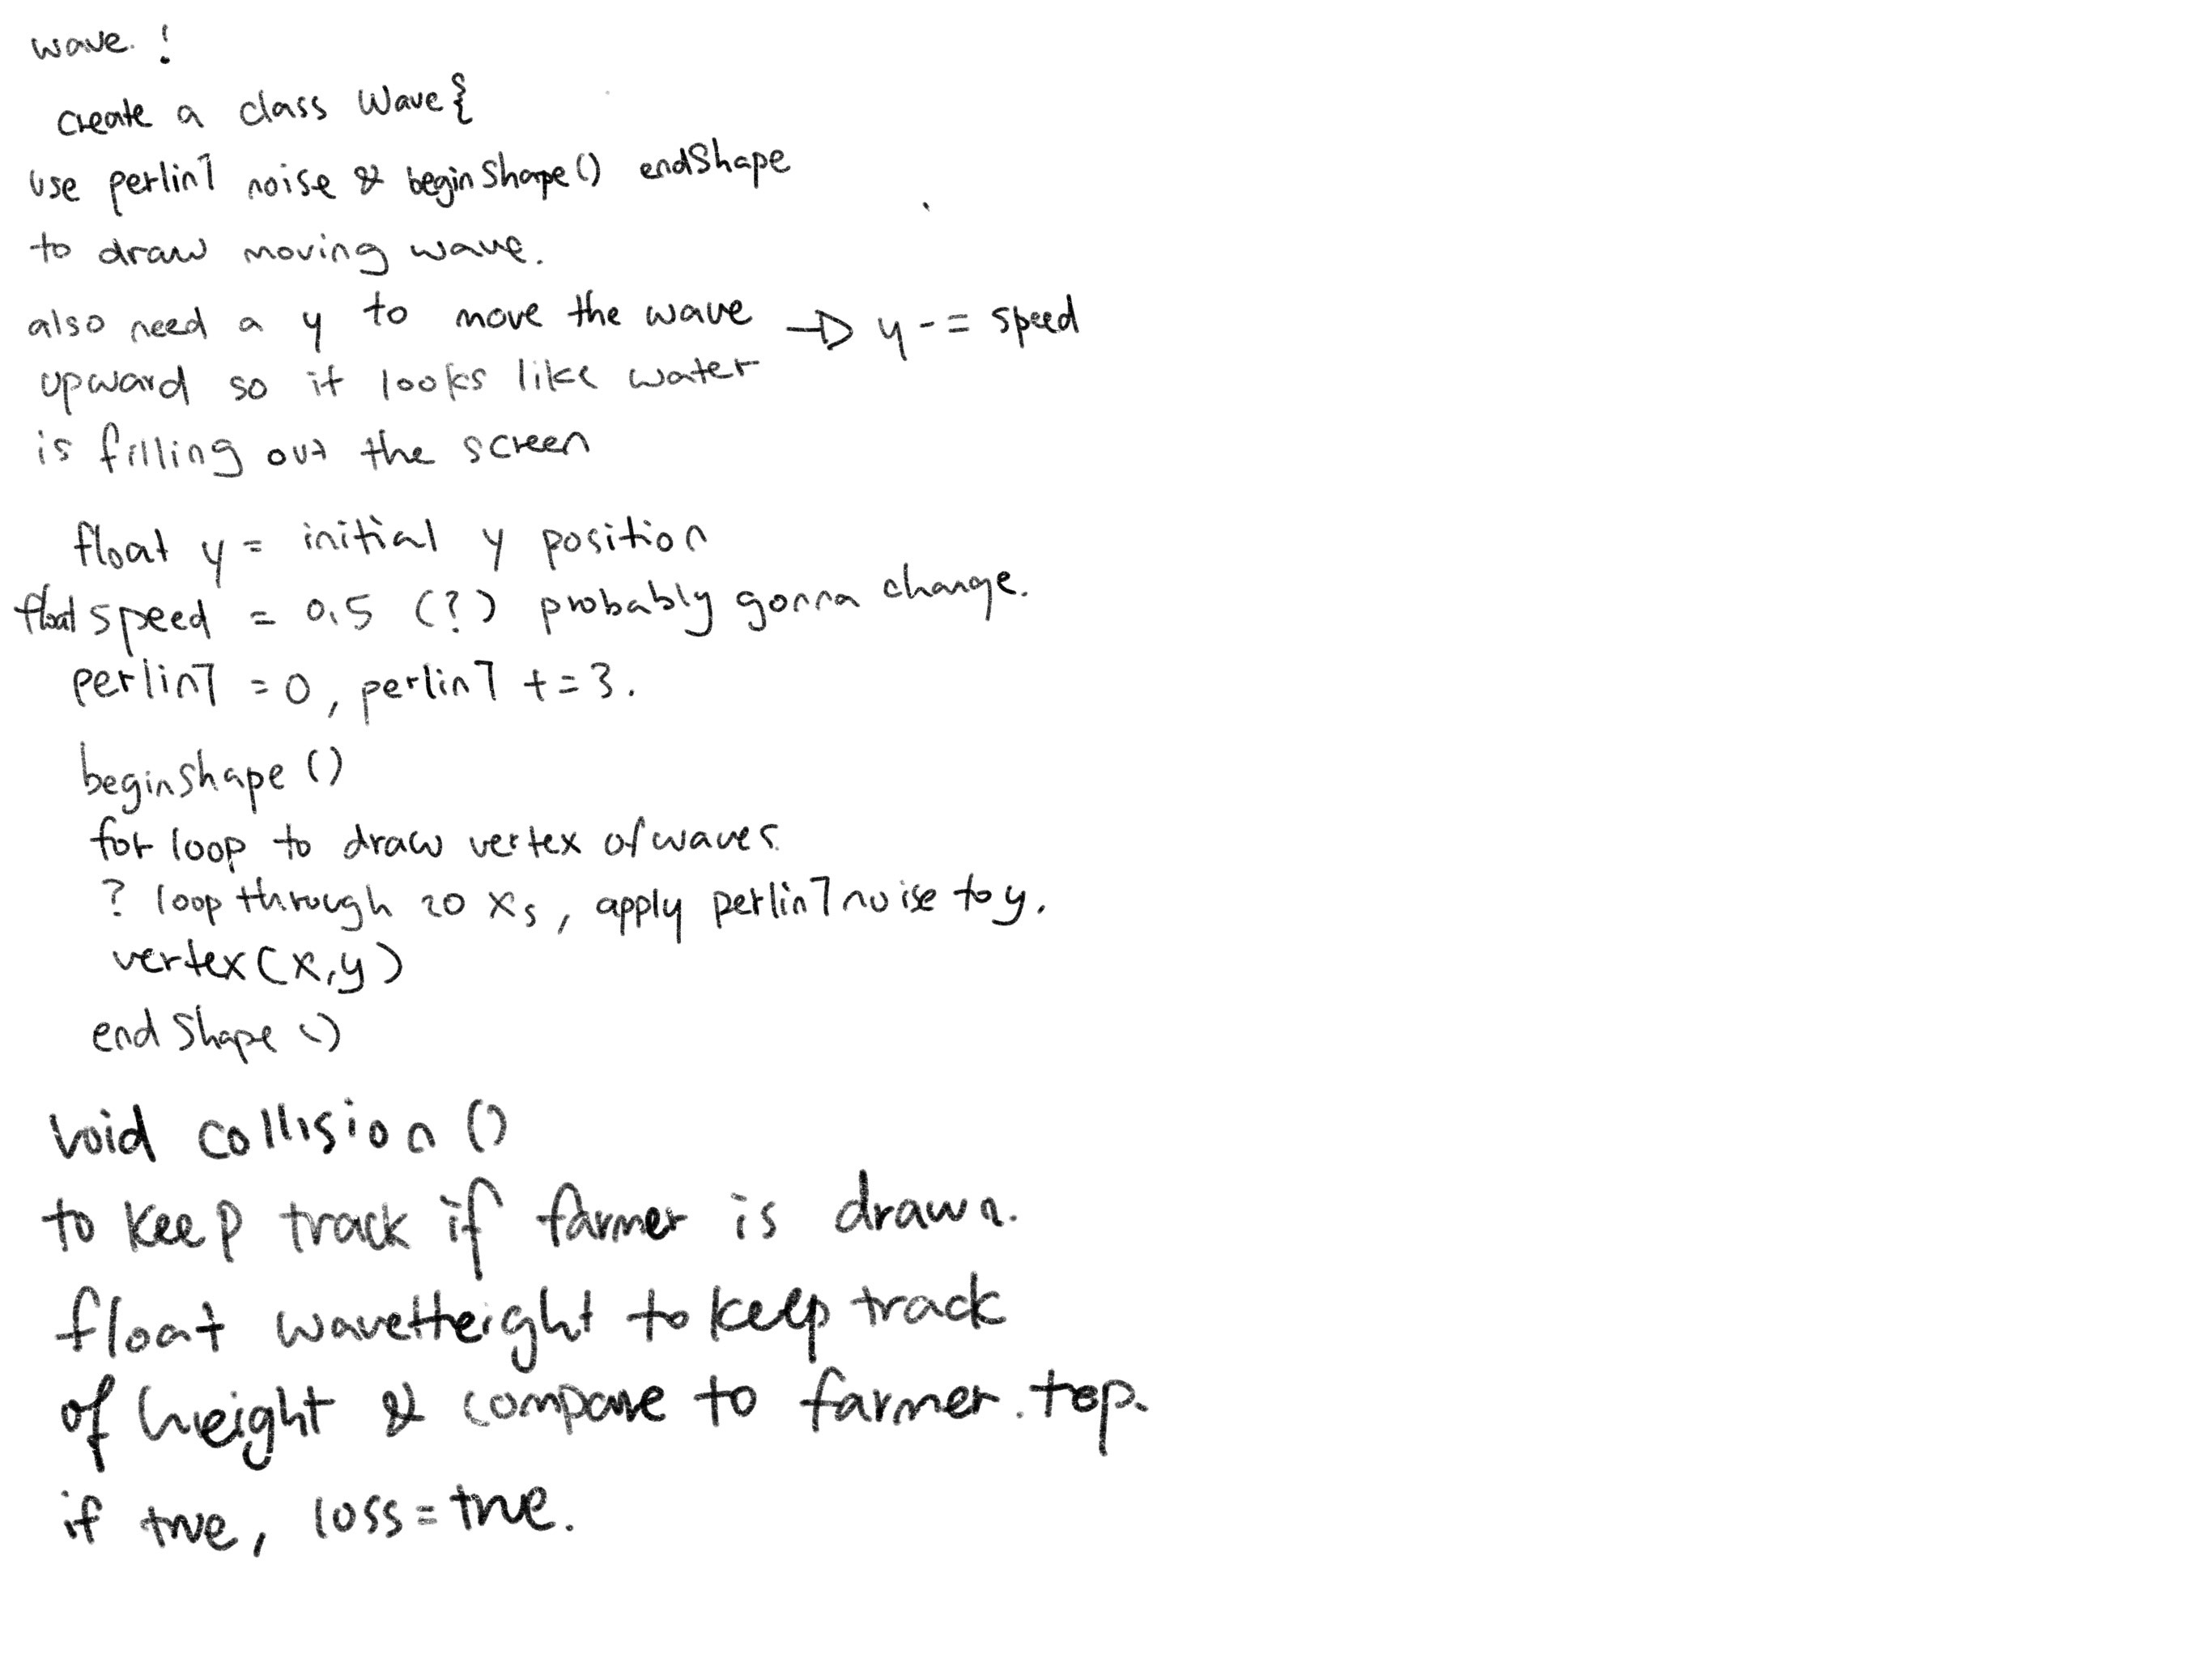 wave :
create a class Wave{
use perlinT noise & beginShape() endShape
to draw moving wave.
also need a y to move the wave → y -= speed
upward so it looks like water
is filling out the screen
float y = initial y position
float speed = 0.5 (?) probably gonna change.
perlinT = 0, perlinT += 3.
beginShape ()
for loop to draw vertex of waves.
? loop through 20 xs, apply perlinT noise to y.
vertex(x,y)
endShape ()
void collision ()
to keep track if farmer is drawn.
float waveHeight to keep track
of height & compare to farmer.top.
if true, loss = true.